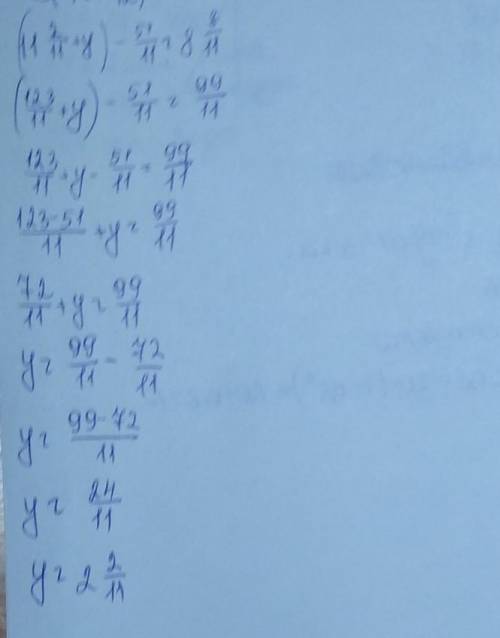 (11 2/11 + y) - 51/11 = 8 8/11
(123/11 + y) - 51/11 = 99/11
123/11 + y - 51/11 = 99/11
123-51/11 + y = 99/11
72/11 + y = 99/11
y = 99/11 - 72/11
y = 99-72/11
y = 24/11
y = 2 2/11